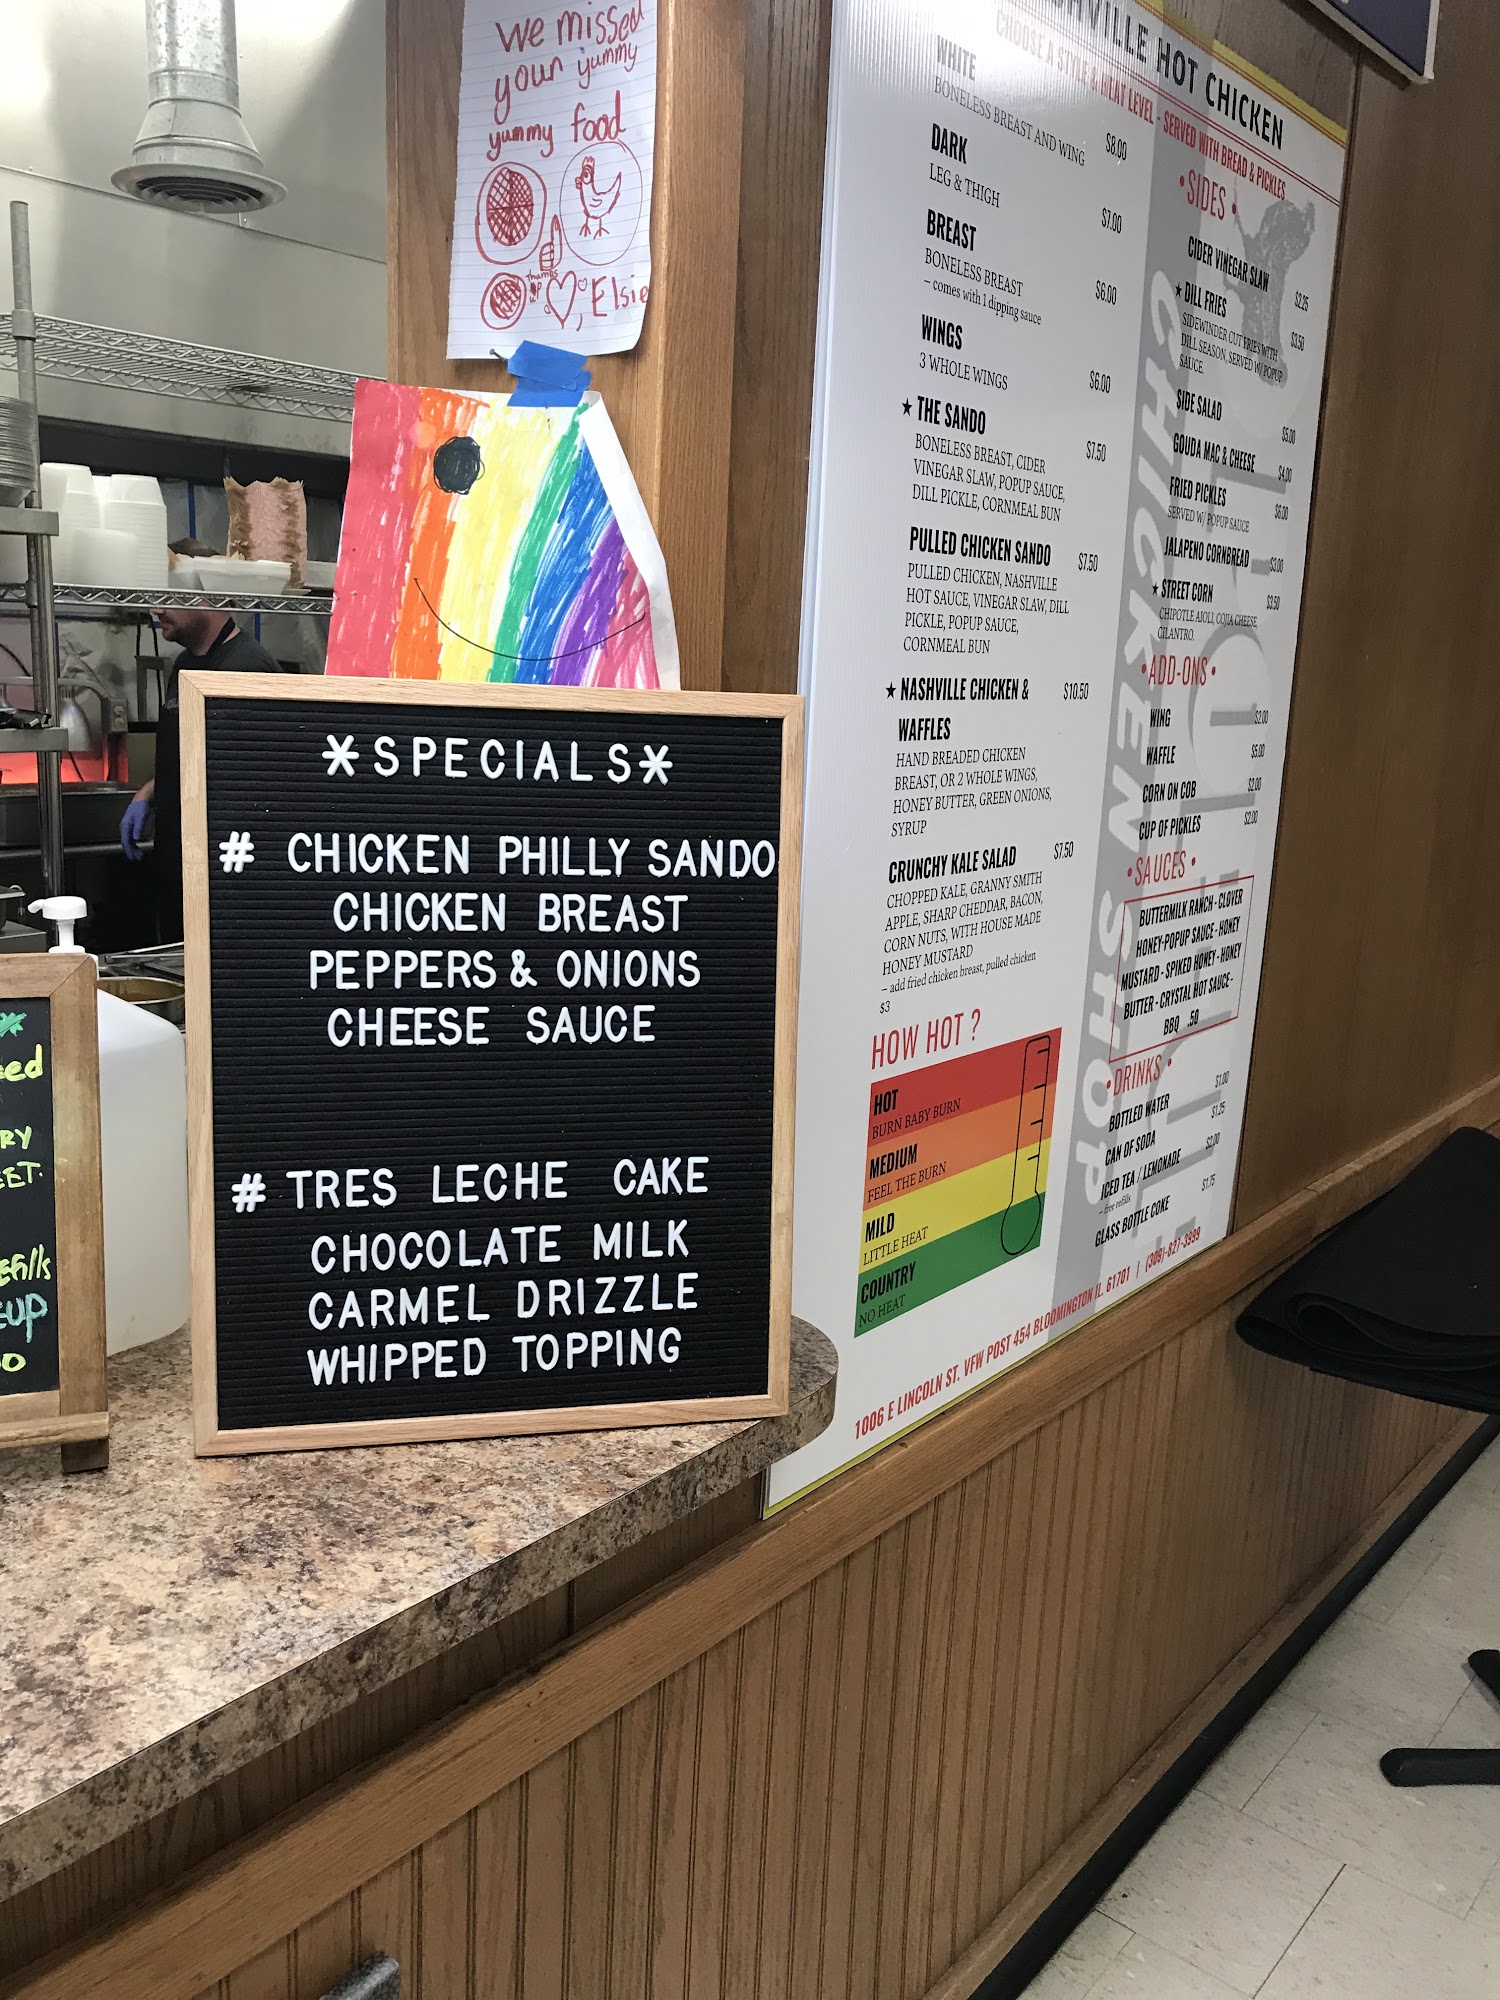 We missed
your yummy
yummy food
Thumbs
up
, Elsie
*SPECIALS*
# CHICKEN PHILLY SANDO
CHICKEN BREAST
PEPPERS & ONIONS
CHEESE SAUCE
# TRES LECHE CAKE
CHOCOLATE MILK
CARMEL DRIZZLE
WHIPPED TOPPING
HOT CHICKEN
CHOOSE A STYLE & HEAT LEVEL - SERVED WITH BREAD & PICKLES
WHITE $8.00
BONELESS BREAST AND WING
DARK $7.00
LEG & THIGH
BREAST $6.00
BONELESS BREAST
– comes with 1 dipping sauce
WINGS $6.00
3 WHOLE WINGS
★ THE SANDO $7.50
BONELESS BREAST, CIDER
VINEGAR SLAW, POPUP SAUCE,
DILL PICKLE, CORNMEAL BUN
PULLED CHICKEN SANDO $7.50
PULLED CHICKEN, NASHVILLE
HOT SAUCE, VINEGAR SLAW, DILL
PICKLE, POPUP SAUCE,
CORNMEAL BUN
★ NASHVILLE CHICKEN & $10.50
WAFFLES
HAND BREADED CHICKEN
BREAST, OR 2 WHOLE WINGS,
HONEY BUTTER, GREEN ONIONS,
SYRUP
CRUNCHY KALE SALAD $7.50
CHOPPED KALE, GRANNY SMITH
APPLE, SHARP CHEDDAR, BACON,
CORN NUTS, WITH HOUSE MADE
HONEY MUSTARD
– add fried chicken breast, pulled chicken
$3
HOW HOT ?
HOT
BURN BABY BURN
MEDIUM
FEEL THE BURN
MILD
LITTLE HEAT
COUNTRY
NO HEAT
• SIDES •
CIDER VINEGAR SLAW $2.25
★ DILL FRIES $3.50
SIDEWINDER CUT FRIES WITH
DILL SEASON, SERVED W/ POPUP
SAUCE.
SIDE SALAD $5.00
GOUDA MAC & CHEESE $4.00
FRIED PICKLES $6.00
SERVED W/ POPUP SAUCE
JALAPENO CORNBREAD $3.00
★ STREET CORN $3.50
CHIPOTLE AIOLI, COJIA CHEESE,
CILANTRO.
• ADD-ONS •
WING $2.00
WAFFLE $5.00
CORN ON COB $2.00
CUP OF PICKLES $2.00
• SAUCES •
BUTTERMILK RANCH - CLOVER
HONEY-POPUP SAUCE - HONEY
MUSTARD - SPIKED HONEY - HONEY
BUTTER - CRYSTAL HOT SAUCE -
BBQ .50
• DRINKS •
BOTTLED WATER $1.00
CAN OF SODA $1.25
ICED TEA / LEMONADE $2.00
– free refills
GLASS BOTTLE COKE $1.75
CHICKEN SHOP
1006 E LINCOLN ST. VFW POST 454 BLOOMINGTON IL. 61701 | (309)-827-3999